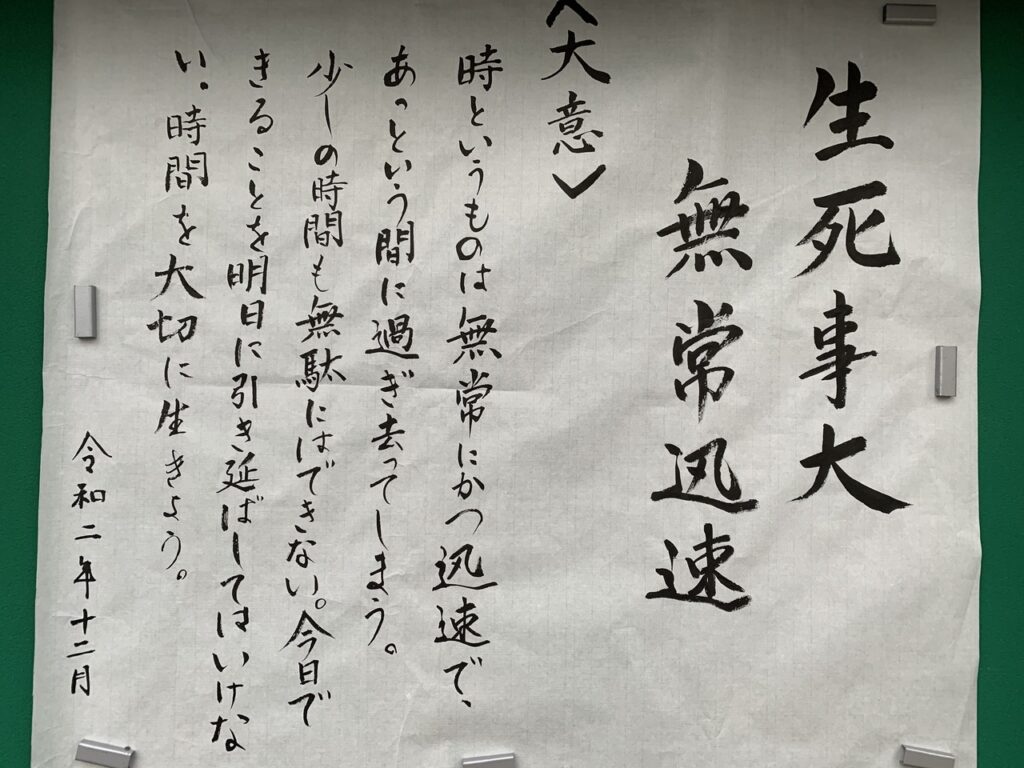 生死事大
無常迅速
〈大意〉
時というものは無常にかつ迅速で、
あっという間に過ぎ去ってしまう。
少しの時間も無駄にはできない。今日で
きることを明日に引き延ばしてはいけな
い。時間を大切に生きよう。
令和二年十二月